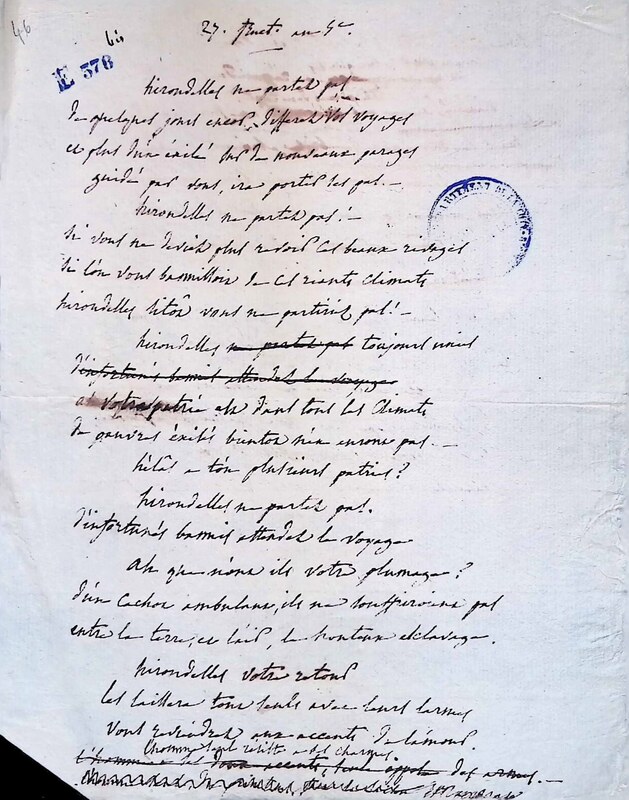 46
bis
27. fruct. an 5e.
E 376
hirondelles ne partez pas
de quelques jours encor, differez vos voyages
et plus d'un éxilé sur de nouveaux parages
guidé par vous, ira porter ses pas. —
hirondelles ne partez pas! —
si vous ne deviez plus revoir ces beaux rivages
si l'on vous bannissoit de ces riants climats
hirondelles sitôt vous ne partiriez pas! —
hirondelles ne partez pas toujours unies
d'infortunés bannis attendez le voyage
votre patrie ah dans tous les climats
de pauvres éxilés bientot n'en auront pas. —
hélas a t'on plusieurs patries?
hirondelles ne partez pas.
d'infortunés bannis attendez le voyage
Ah que n'ont ils votre plumage?
d'un cachot ambulant, ils ne souffriroient pas
entre la terre, et l'air, le honteux esclavage.
hirondelles votre retour
les laissera tous seuls avec leurs larmes
vous reviendrez aux accents de l'amour.
l'homme seul résiste a ses charmes.
l'homme a ses doux accents, des armes. —
du printems,